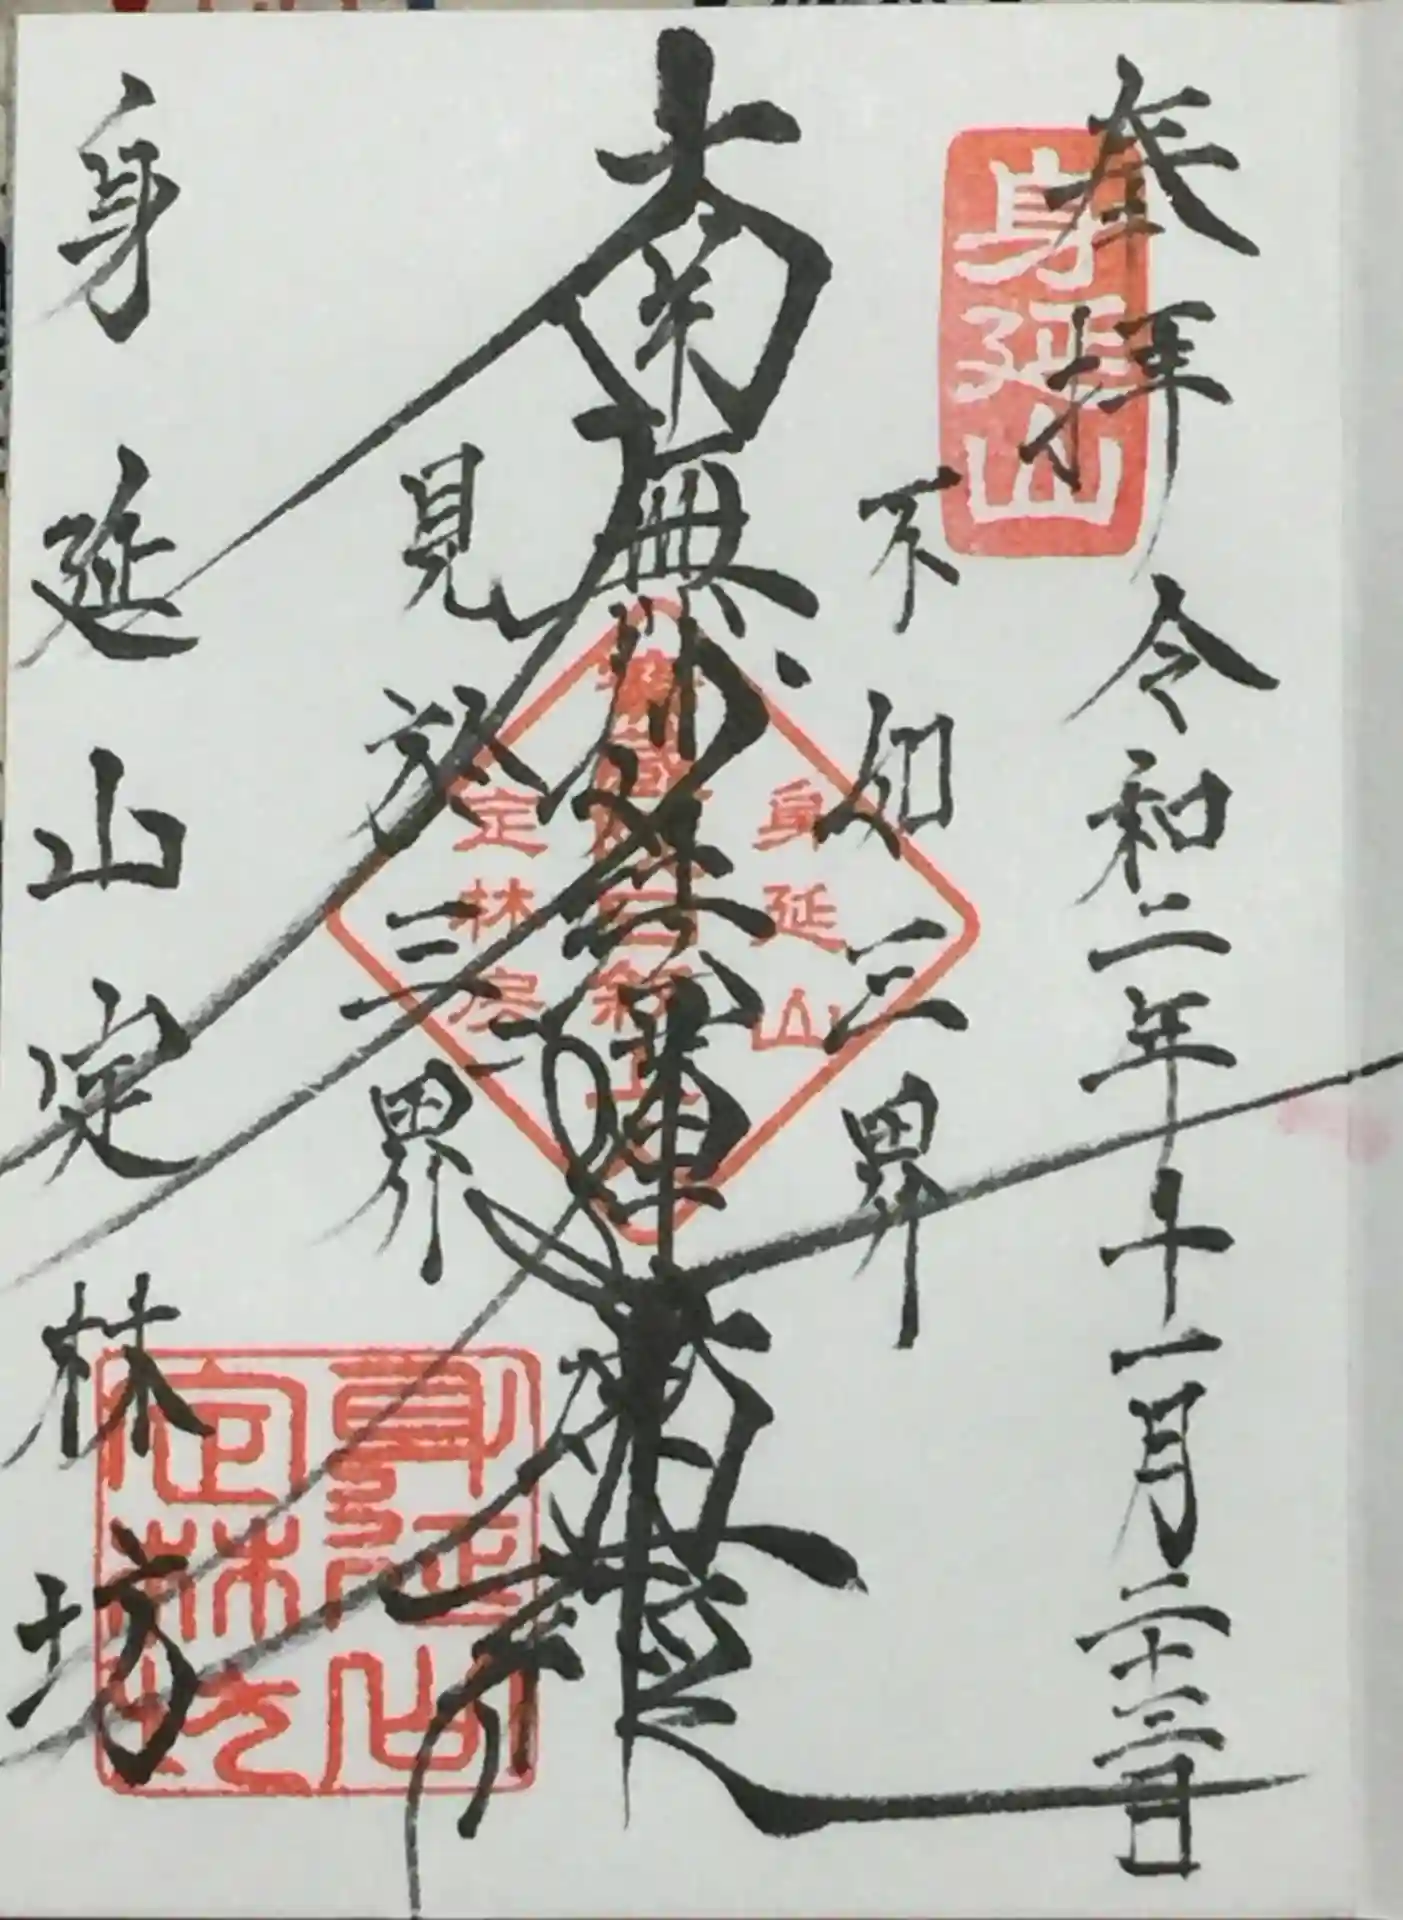 奉拝
令和二年十一月二十三日
身延山
不如三界
南無妙法蓮華経
見於三界
身延山
定林房
身延山定林坊
身延山
定林坊